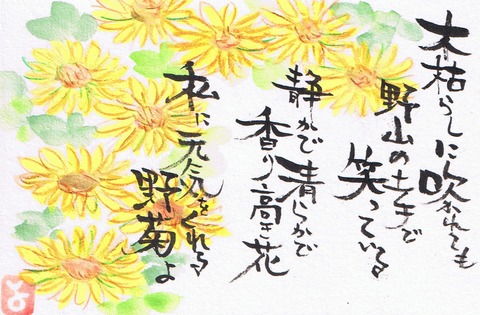 木枯らしに吹かれても
野山の土手で
笑っている
静かで清らかで
香り高き花
私に元気をくれる
野菊よ